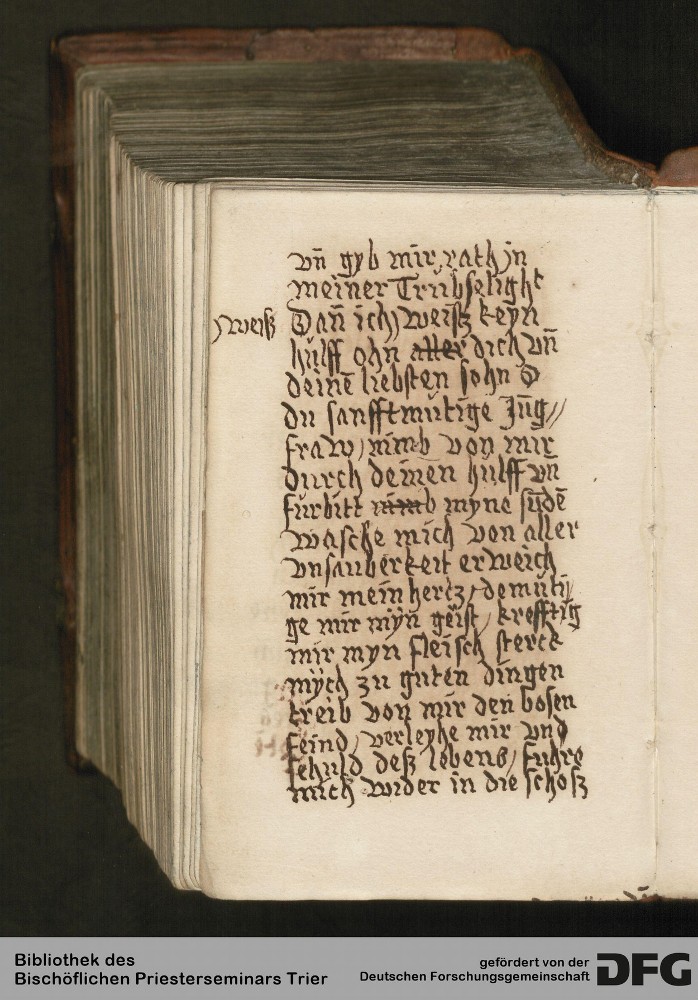 vn̄ gyb mir rath jn
meiner Trübselight
)weiß
Dan̄ ich) weisß keyn
hülff ohn aller dich vn̄
deinē liebsten sohn O
du sanfftmütige Jūg//
fraw, nimb von mir
durch deinen hülff vn̄
fürbitt nimb myne sündē
wasche mich von aller
vnsauberkeit erweich
mir mein hertz, demüti/
ge mir mÿn geist, krefftig
mir myn fleisch sterck
mÿch zu guten dingen
treib von mir den bosen
feind, verleyhe mir vnd
deß lebens, fuhre
mich wider in die schoß
Bibliothek des
Bischöflichen Priesterseminars Trier
gefördert von der
Deutschen Forschungsgemeinschaft
DFG